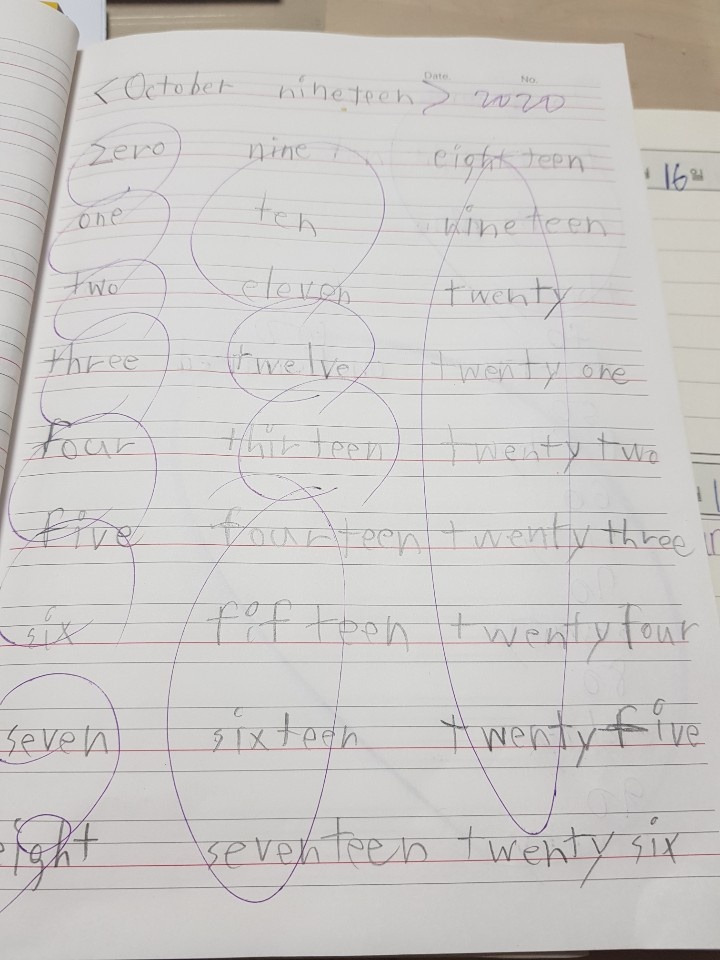 Date No.
<October nineteen> 2020
zero nine eighteen
one ten nineteen
two eleven twenty
three twelve twenty one
four thirteen twenty two
five fourteen twenty three
six fifteen twenty four
seven sixteen twenty five
eight seventeen twenty six
16